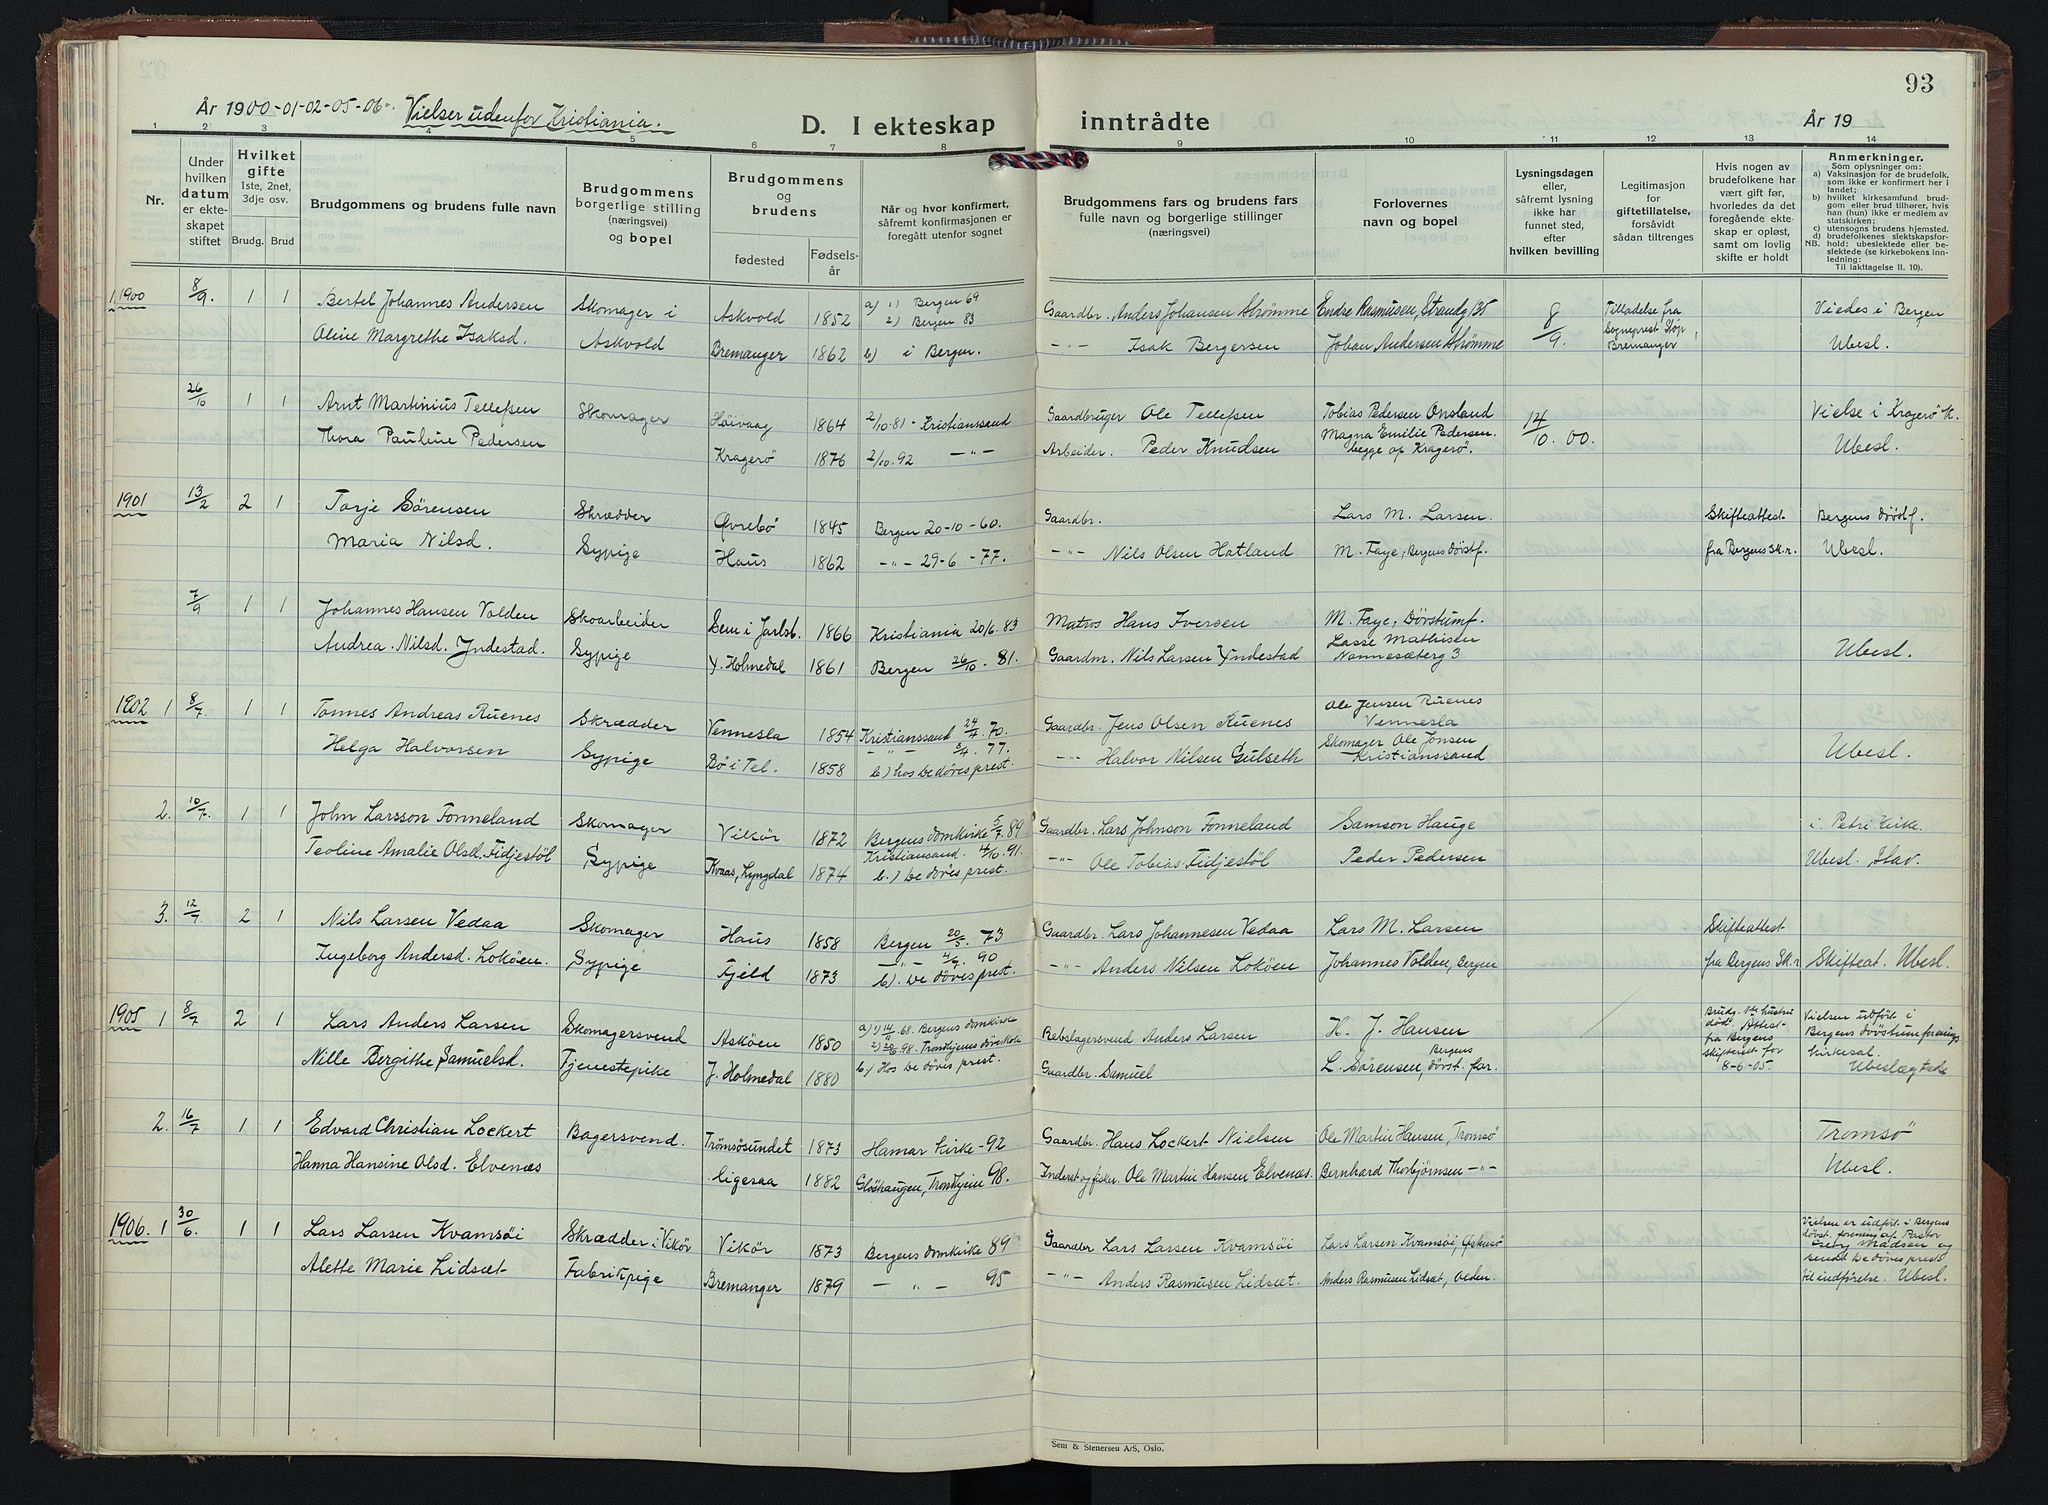 93
År 1900-01-02-05-06. Vielser udenfor Kristiania.
D. I ekteskap inntrådte
År 19
1 2 3 4 5 6 7 8 9 10 11 12 13 14
Nr.
Under hvilken datum er ekteskapet stiftet
Hvilket gifte 1ste, 2net, 3dje osv.
Brudg. Brud
Brudgommens og brudens fulle navn
Brudgommens borgerlige stilling (næringsvei) og bopel
Brudgommens og brudens
fødested
Fødselsår
Når og hvor konfirmert, såfremt konfirmasjonen er foregått utenfor sognet
Brudgommens fars og brudens fars fulle navn og borgerlige stillinger (næringsvei)
Forlovernes navn og bopel
Lysningsdagen eller, såfremt lysning ikke har funnet sted, efter hvilken bevilling
Legitimasjon for giftetillatelse, forsåvidt sådan tiltrenges
Hvis nogen av brudefolkene har vært gift før, hvorledes da det foregående ekteskap er opløst, samt om lovlig skifte er holdt
Anmerkninger.
Som oplysninger om:
a) Vaksinasjon for de brudefolk, som ikke er konfirmert her i landet;
b) hvilket kirkesamfund brudgom eller brud tilhører, hvis han (hun) ikke er medlem av statskirken;
c) utensogns brudens hjemsted.
d) brudefolkenes slektskapsforhold: ubeslektede eller beslektede (se kirkebokens innledning:
NB.
Til iakttagelse II. 10).
1900 8/9. 1 1 Bertel Johannes Andersen Skomager i Askvold 1852 a) 1) Bergen 69 2) Bergen 83 Gaardbr. Anders Johansen Strømme Endre Rasmussen, Strandg 135 8/9. Tilladelse fra Sogneprest Bremanger Viedes i Bergen
Oline Margrethe Isaksd. Askvold Bremanger 1862 b) i Bergen. -"- Isak Bergersen Johan Andersen Strømme Ubesl.
26/10 1 1 Arnt Martinius Tellefsen Skomager Høivaag 1864 2/10.81 - Kristianssand Gaardbruger Ole Tellefsen Tobias Pedersen Onsland 14/10. 00. Vielse i Kragerö K.
Thora Pauline Pedersen Kragerö 1876 2/10.92 -"- Arbeider. Peder Knudsen Magna Emilie Pedersen. begge af Kragerö. Ubesl.
1901 13/2 2 1 Torje Sörensen Skrædder Øvrebö 1845 Bergen 20-10-60. Gaardbr. Lars M. Larsen. Skifteattest Bergens Døvstf.
Maria Nilsd. Sypige Haus 1862 -"- 29-6-77. -"- Nils Olsen Hatland M. Faye, Bergens Dövstf. fra Bergens Sk.r. Ubesl.
7/9 1 1 Johannes Hansen Volden Skoarbeider Sem i Jarlsb. 1866 Kristiania 20/6. 83 Matros Hans Iversen M. Faye, Dövstumf.
Andrea Nilsd. Yndestad. Sypige Y. Holmedal 1861 Bergen 26/10. 81. Gaardm. Nils Larsen Yndestad Lasse Mathisen Nonnesæterg 3 Ubesl.
1902 1 8/7 1 1 Tønnes Andreas Ruenes Skrædder Vennesla 1854 Kristianssand 24/4. 70. Gaardbr. Jens Olsen Ruenes Ole Jensen Ruenes Vennesla
Helga Halvorsen Sypige Bö i Tel. 1858 -"- 77. b.) hos de døves prest. -"- Halvor Nilsen Gulseth Skomager Ole Jonsen Kristianssand Ubesl.
2. 10/7. 1 1 John Larsson Tonneland Skomager Vikör 1872 Bergens Domkirke 5/7. 89 Gaardbr. Lars Johnson Tonneland Samson Hauge i Petri Kirke.
Teoline Amalie Olsd. Fidjestöl Sypige Kvaas, Lyngdal 1874 Kristiansand. 4/10. 91. b.) De döves prest. -"- Ole Tobias Fidjestöl Peder Pedersen Ubesl. Stav.
3. 12/7. 2 1 Nils Larsen Vedaa Skomager Haus 1858 Bergen 20/5. 73 Gaardbr. Lars Johannesen Vedaa Lars M. Larsen Skifteattest
Ingeborg Andersd. Loköen. Sypige Fjeld 1873 -"- 90 b.) De döves prest. -"- Anders Nilsen Loköen Johannes Volden, Bergen fra Bergens Sk.r Skifteat. Ubesl.
1905 1 8/7 2 1 Lars Anders Larsen Skomagersvend Asköen 1850 a) 1) 14/11 68. Bergens Domkirke 2) 20/6 98. Trondhjems döveskole Rebslagersvend Anders Larsen H. J. Hansen Brudg. 1ste hustru död. Attest fra Bergens skifteret for 8-6-05. Vielsen udført i Bergens Døvstumforenings Kirkesal.
Nille Bergithe Samuelsd. Tjenestepike J. Holmedal 1880 b.) Hos De döves prest. Gaardbr. Samuel L. Sørensen, Bergens dövst. for. Ubeslægtede
2. 16/7 1 1 Edvard Christian Lockert Bagersvend. Tromsösundet 1873 Hamar Kirke - 92 Gaardbr. Hans Lockert Nielsen Ole Martin Hansen, Tromsö Tromsö
Hanna Hansine Olsd. Elvenæs ligesaa 1882 Gløshaugen, Trondhjem 98. Inderst og fisker Ole Martin Hansen Elvenæs. Bernhard Thorbjörnsen -"- Ubesl.
1906. 1 30/6. 1 1 Lars Larsen Kvamsöi Skrædder i Vikör Vikör 1873 Bergens Domkirke 89 Gaardbr Lars Larsen Kvamsöi Lars Larsen Kvamsöi, Vielsen er udført i Bergens dövst. forening af Pastor Madsen og sendt De döves prest til indførelse. Ubesl.
Alette Marie Lidsæt Fabrikpige Bremanger 1879 -"- 95 -"- Anders Rasmusen Lidsæt. Anders Rasmusen Lidsæt,
Sem & Stenersen A/S, Oslo.